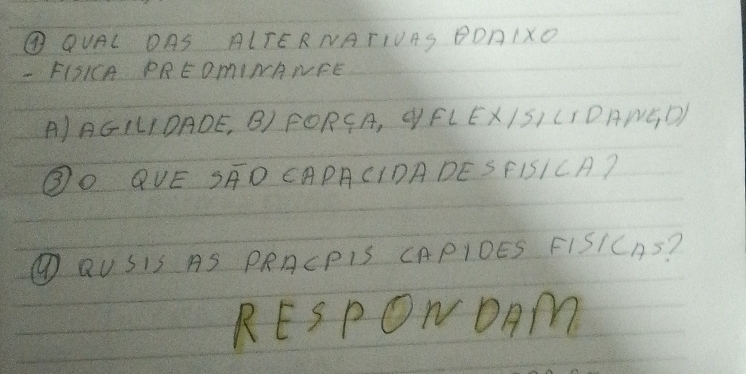 ① QUAL DAS ALTERNATIVAS BDAIXO
- FISICA PREDMINANFE
A) AGILIDADE, B) FORÇA, C) FLEXISILIDANG, D)
③ O QUE SÃO CAPACIDADES FISICA?
④ QUSIS AS PRACPIS CAPIDES FISICAS?
RESPONDAM